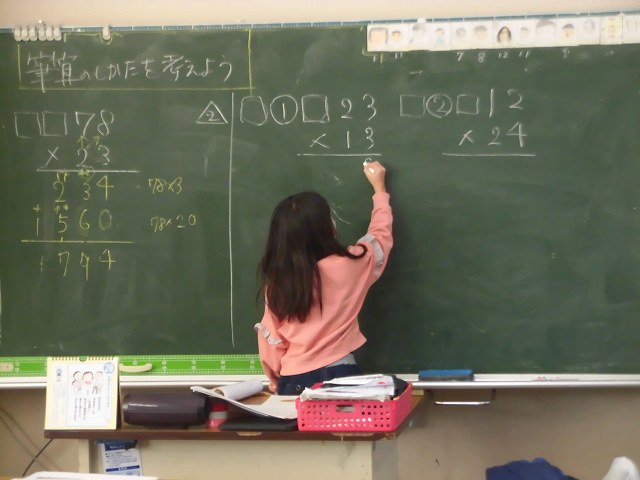 筆算のしかたを考えよう
□□78
×23
234 78×3
1560 78×20
1794
△2 □①□23
×13
□②□12
×24